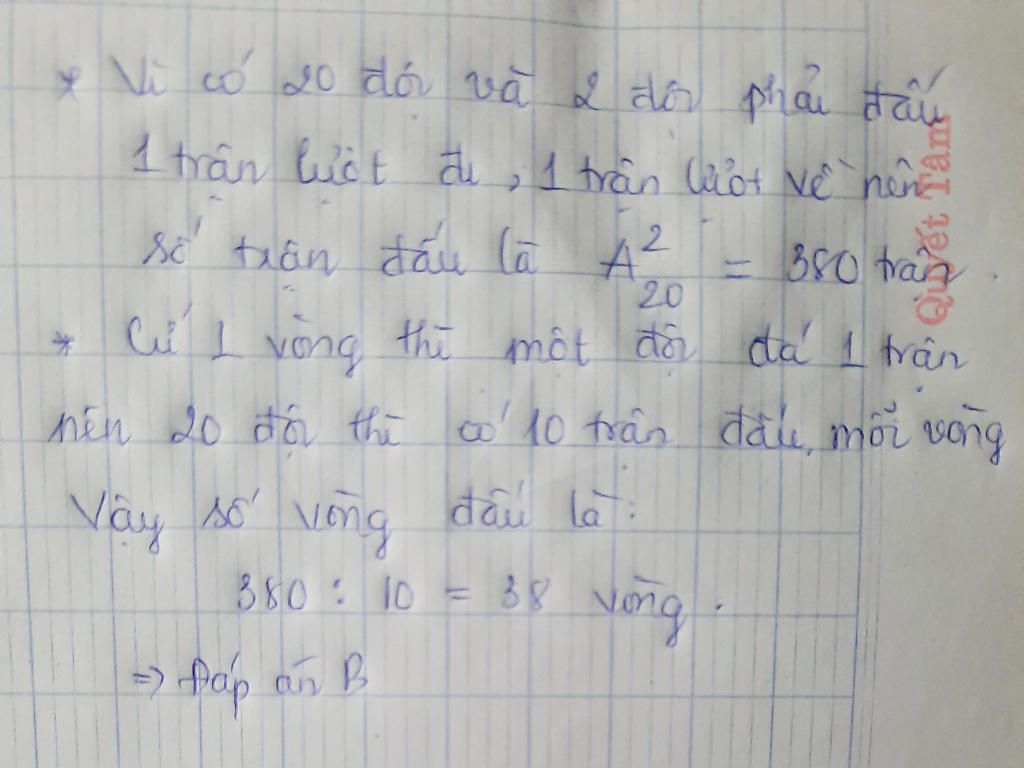 * Vì có 20 đội và 2 đội phải đấu
1 trận lượt đi, 1 trận lượt về nên
số trận đấu là A²₂₀ = 380 trận.
* Cứ 1 vòng thì một đội đá 1 trận
nên 20 đội thì có 10 trận đấu mỗi vòng
Vậy số vòng đấu là:
380 : 10 = 38 vòng.
=> Đáp án B
Quyết Tâm